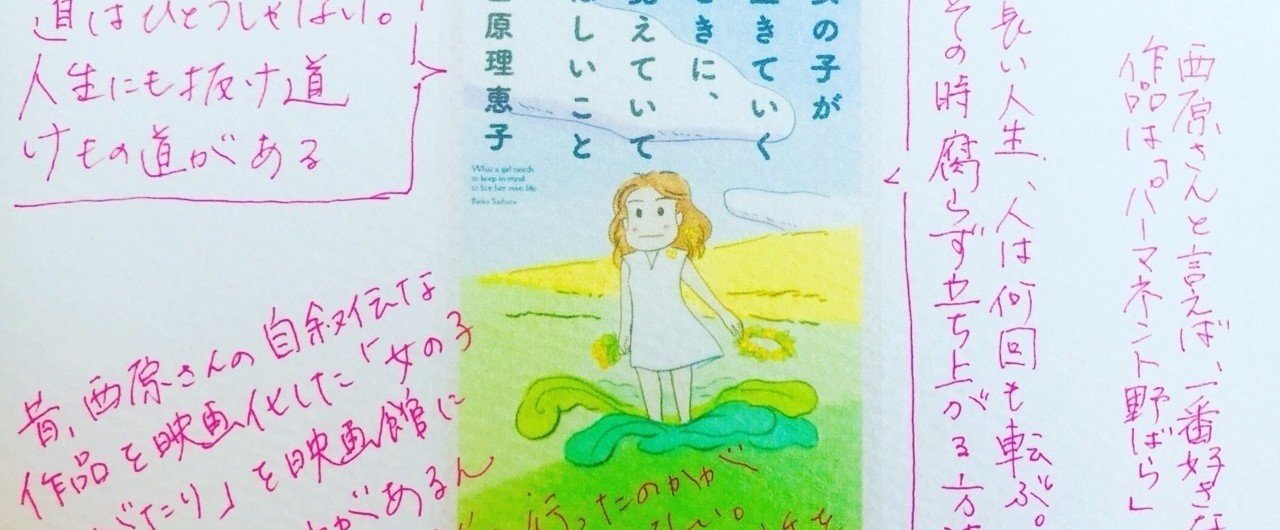 西原さんと言えば、一番好きな
作品は「パーマネント野ばら」
長い人生、人は何回も転ぶ。
その時腐らず立ち上がる方法
女の子が
生きていく
ときに、
覚えていて
ほしいこと
西原理恵子
What a girl needs
to keep in mind
to live her own life
Rieko Saibara
道はひとつじゃない。
人生にも抜け道
けもの道がある
昔、西原さんの自叙伝な
作品を映画化した「女の子
がたり」を映画館に
があるん
行ったのかが